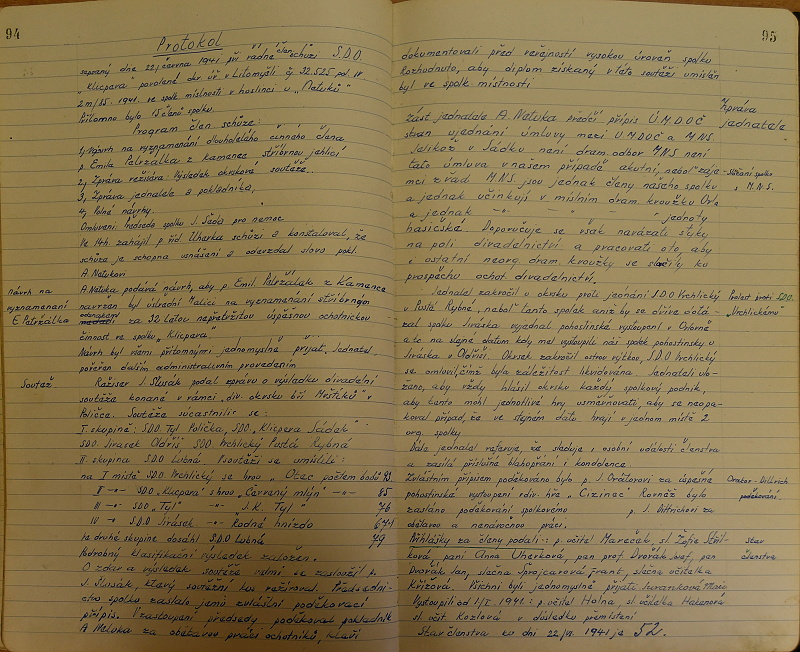 94
Protokol
sepsaný dne 22/června 1941 při řádné člen schůzi S.D.O.
"Klicpera" povolené okr úř. v Litomyšli čj 32.525 pol. IV
2m/15. 1941. ve spolk místnosti v hostinci u "Netuků"
Přítomno bylo 15 členů spolku.
Program člen schůze:
1, Návrh na vyznamenání dlouholetého činného člena
p Emila Petržálka z Kamenec stříbrnou jehlicí
2, Zpráva režiséra: Výsledek okrskové soutěže.
3, Zpráva jednatele a pokladníka,
4, Volné návrhy.
Omluveni: Předseda spolku J. Sada pro nemoc
Ve 14h. zahájil p. říd. Uherka schůzi a konstatoval, že
schůze je schopna usnášení a odevzdal slovo pokl.
A. Netukovi
návrh na
vyznamenání
E. Petržálka
A. Netuka podává návrh, aby p. Emil Petržálek z Kamence
navržen byl ústřední Matici na vyznamenání stříbrným
odznakem
za 32 letou nepřetržitou úspěšnou ochotnickou
činnost ve spolku "Klicpera"
Návrh byl všemi přítomnými jednomyslně přijat, Jednatel
pověřen dalším administrativním provedením
Soutěž
Režiser J. Slusák podal zprávu o výsledku divadelní
soutěže konané v rámci "div. okrsku bří Mrštíků" v
Poličce. Soutěže súčastnilis se:
I. skupině: SDO. Tyl Polička, SDO. "Klicpera Sádek"
S.D.O. Jirásek Oldřiš SDO. Vrchlický Pustá Rybná
II. skupina S.D.O Lubná. V soutěži se umístili:
na I místě S.D.O. Vrchlický se hrou "Otec počtem bodů 93
II -"- SDO. "Klicpera" s hrou "Červený mlýn" -"- 85
III -"- SDO "Tyl" -"- "J.K. Tyl" 76
IV -"- S.D.O Jirásek -"- "Rodné hnízdo 67½
Ve druhé skupině dosáhl S.D.O Lubná 79
Podrobný klasifikační výsledek založen.
O zdar a výsledek soutěže velmi se zasloužil p.
J. Slusák, který soutěžní kus režíroval. Předsednictvo
spolku zaslalo jemu zvláštní poděkovací
přípis. V zastoupení předsedy poděkoval pokladník
A Netuka za obětavou práci ochotníků, kteří
95
dokumentovali před veřejností vysokou úroveň spolku
Rozhodnuto, aby diplom získaný v této soutěži umístěn
byl ve spolk. místnosti
Zpráva
jednatele
Zást jednatele A. Netuka předčí přípis Ú.M.D.O.Č
stran ujednání úmluvy mezi U.M.D.O.Č a M.N.S.
Jelikož v Sádku není dram. odbor M.N.S. není
tato úmluva v našem případě akutní, neboť zájemci
z řad M.N.S jsou jednak členy našeho spolku
a jednak účinkují v místním dram. kroužku Orla
a jednak -"- " - " - " jednoty
hasičské. Doporučuje se však navázati styky
na poli divadelnictví a pracovati oto, aby
i ostatní neorg. dram. kroužky se sloučily ku
prospěchu ochot. divadelnictví.
s M.N.S.
Jednatel zakročil u okrsku proti jednání S.D.O Vrchlický
v Pusté Rybné, neboť tento spolek aniž by se dříve dotázal
spolku Jiráska vyjednal pohostinské vystoupení v Oldřiši
a to na stejné datum kdy měl vystoupiti náš spolek pohostinsky u
Jiráska v Oldřiši. Okrsek zakročil ostrou výtkou, S.D.O Vrchlický
se omluvil, čímž byla záležitost likvidována. Jednateli uloženo,
aby vždy hlásil okrsku každý spolkový podnik,
aby tento mohl jednotlivé hry usměrňovati, aby se neopakoval
případ, že ve stejném datu hrají v jednom místě 2
org. spolky
Protest proti S.D.O.
"Vrchlickému
Dále jednatel referuje, že sleduje i osobní události členstva
a zasílá příslušné blahopřání i kondolence.
Zvláštním přípisem poděkováno bylo p. J. Orátorovi za úspěšné
pohostinské vystoupení v div. hře "Cizinec". Rovněž bylo
zasláno poděkování spolkovému p. J. Dittrichovi za
obětavou a nenáročnou práci.
Orator - Dittrich
poděkování
Přihlášky za členy podali: p. učitel Mareček, sl. Žofie
paní Anna Uherková, pan prof. Dvořák Josef, pan
Dvořák Jan, slečna Sprojcarová Frant, slečna učitelka
Křížová. Všichni byli jednomyslně přijati.
Vystoupili od 1/I. 1941: p učitel Holna, sl učitelka Hakenová
sl. učit. Kozlová v důsledku přemístění
Stav členstva ku dni 22/VI. 1941 je 52.
Stav
členstva